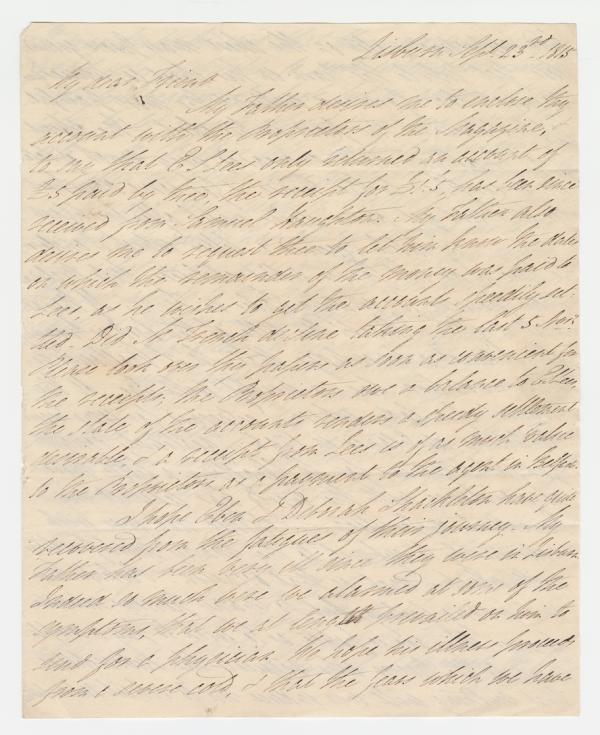 Lisburn Sept. 23rd 1815
My dear Friend
My Father desires me to enclose thy
account with the Proprietors of the Magazine, &
to say that E S Lees only returned an account of
£5 paid by thee, the receipt for £1.5 has been since
received from Samuel Haughton. My Father also
desires me to request thee to let him know the dates
on which the remainder of the money was paid to
Lees, as he wishes to get the accounts speedily set-
tled. Did French decline taking the last 5 Nos.
Please look over thy papers as soon as convenient for
the receipts, the Proprietors owe a balance to
the state of the accounts renders a speedy settlement
desirable, & a receipt from Lees is of as much value
to the Proprietors as a payment to the agent in Belfast.
I hope Eben & Deborah Shackleton have quite
recovered from the fatigues of their journey. My
Father has been very ill since they were in Lisburn.
Indeed so much were we alarmed at some of the
symptoms, that we at length prevailed on him to
send for a physician. We hope his illness proceeds
from a severe cold, & that the fears which we have